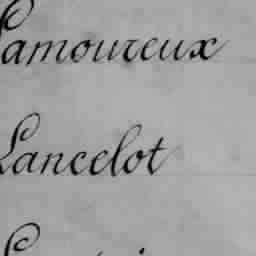 Lamoureux
Lancelot